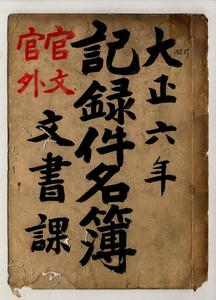 大正六年
記録件名簿
官文
官外
文書課